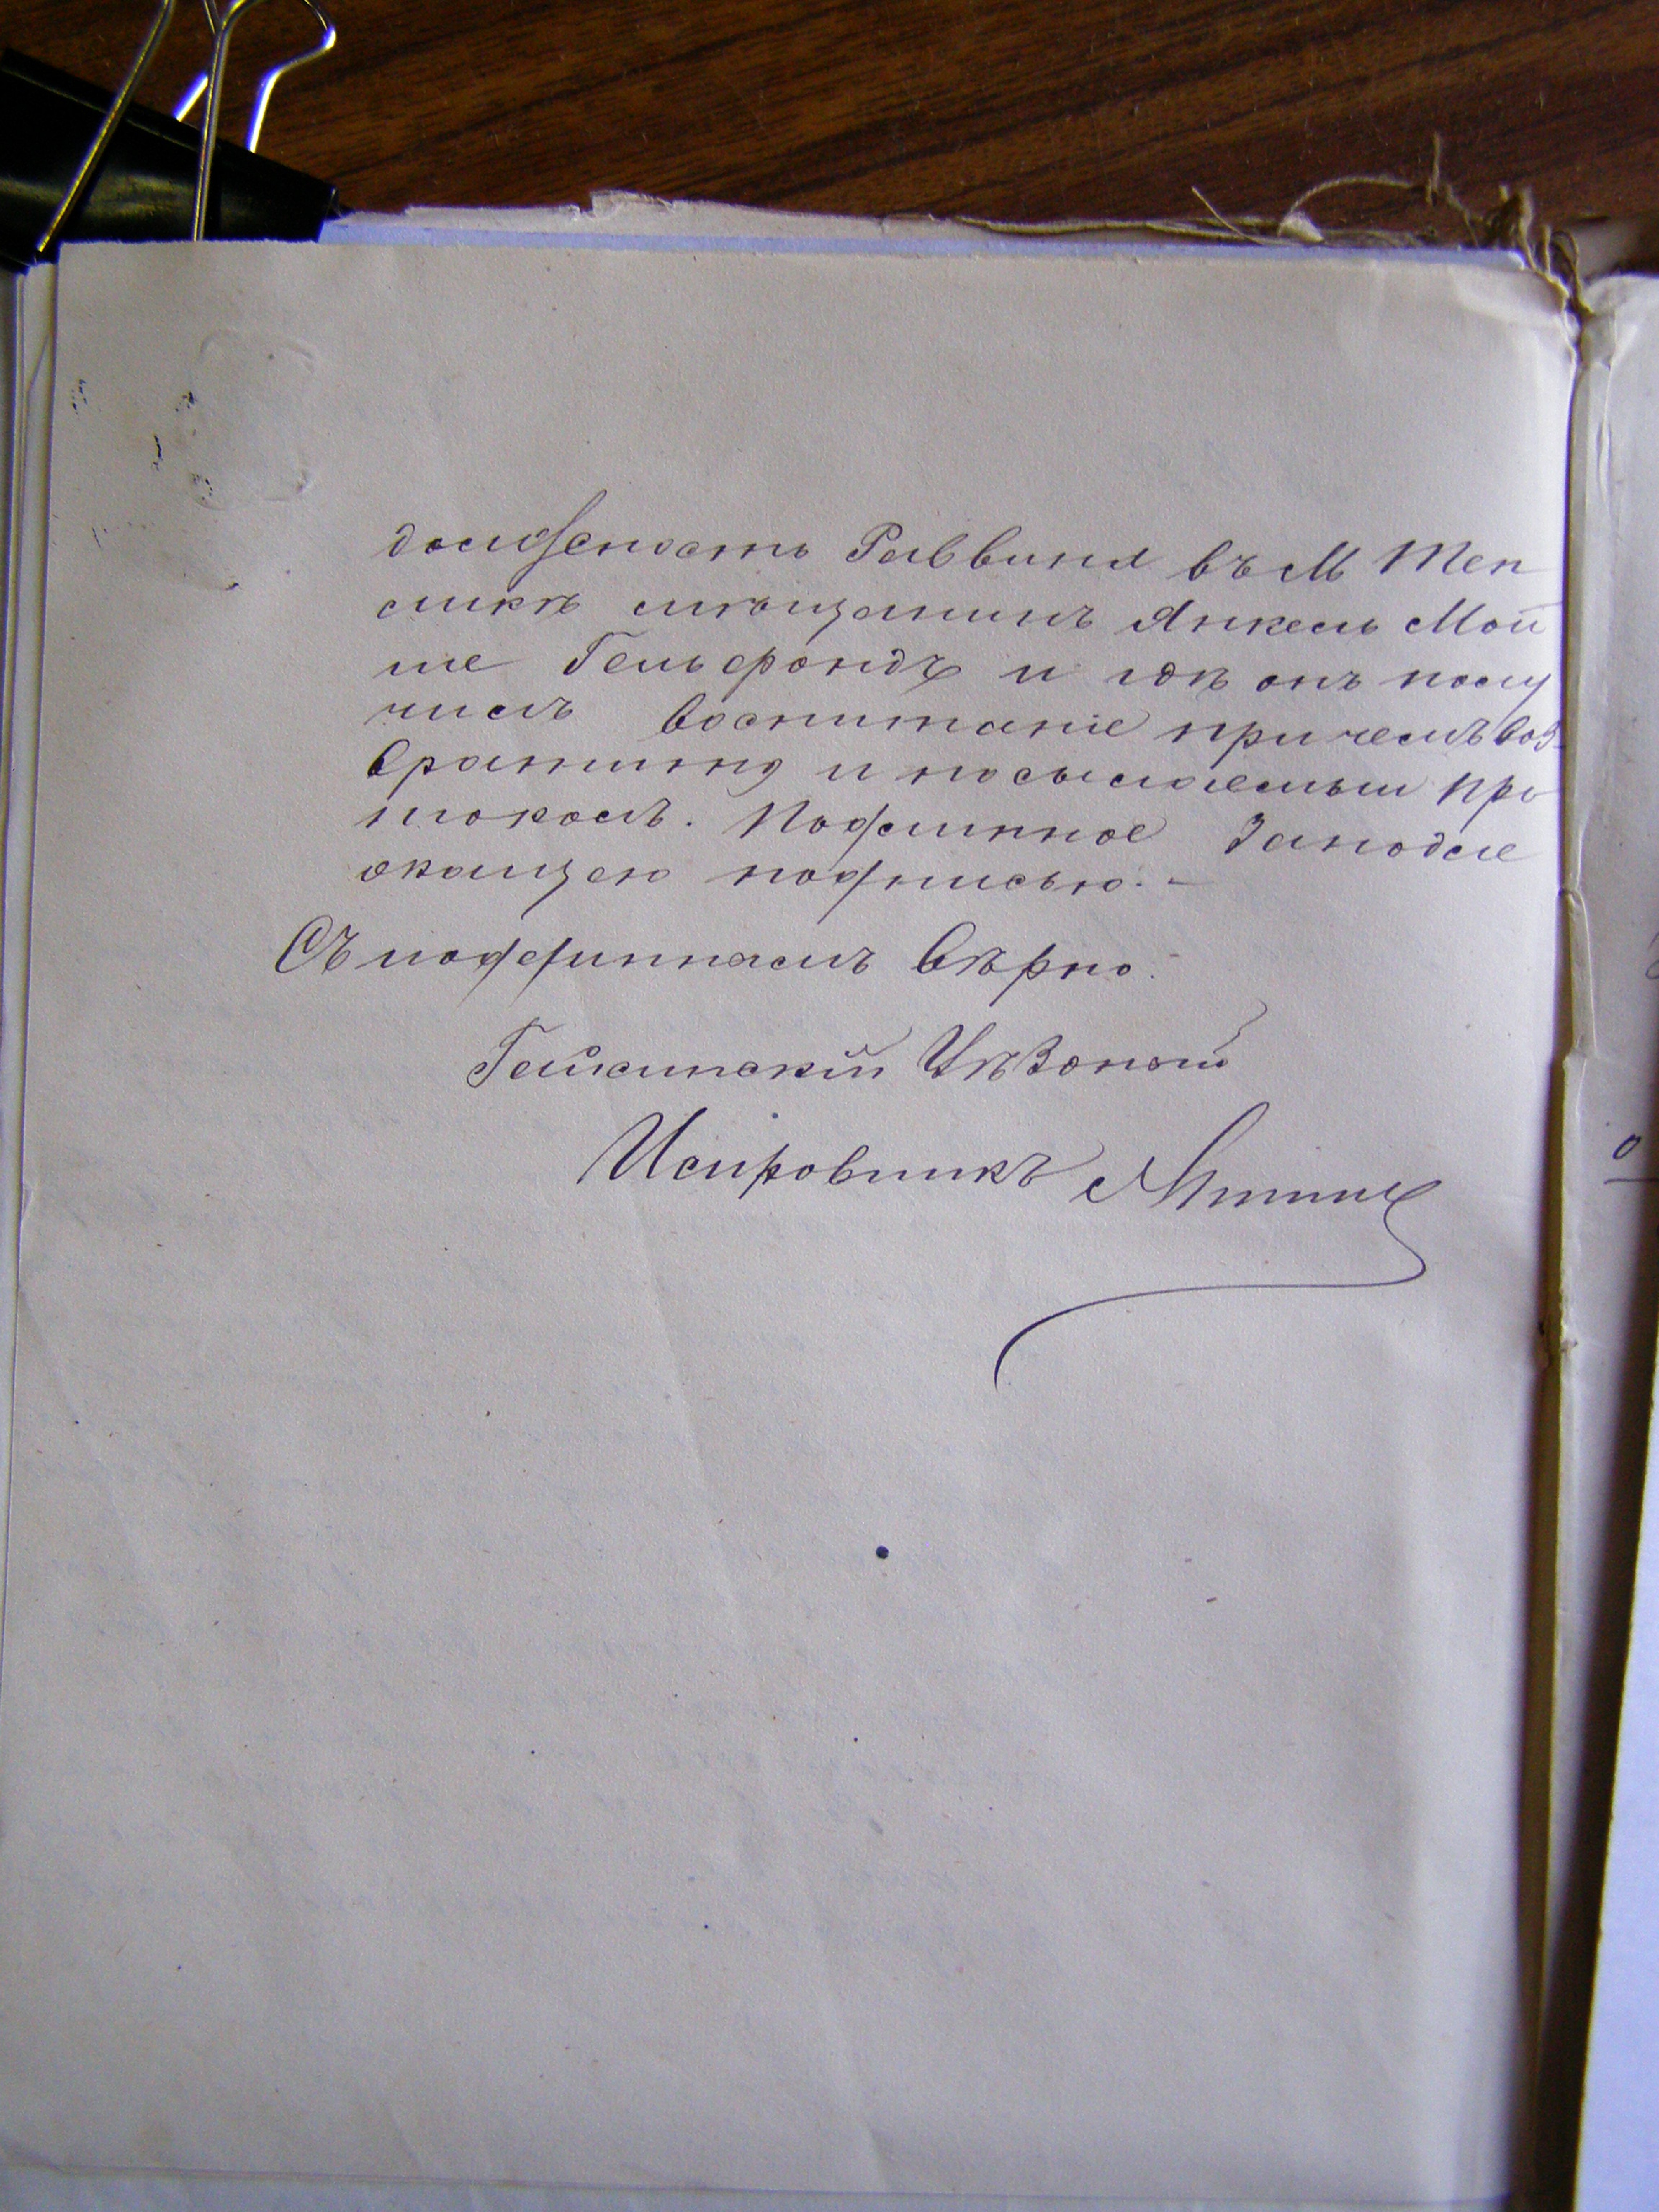 должность Раввина въ М Теп
ликѣ мѣщанинъ Янкель Мой
ше Гельфондъ и гдѣ онъ полу
чилъ воспитаніе при чемъ воз-
вратить и посылаемый про
токолъ. Подлинное за подле
жащею подписью. –
Съ подлиннымъ вѣрно:
Гайсинскій Уѣздный
Исправникъ